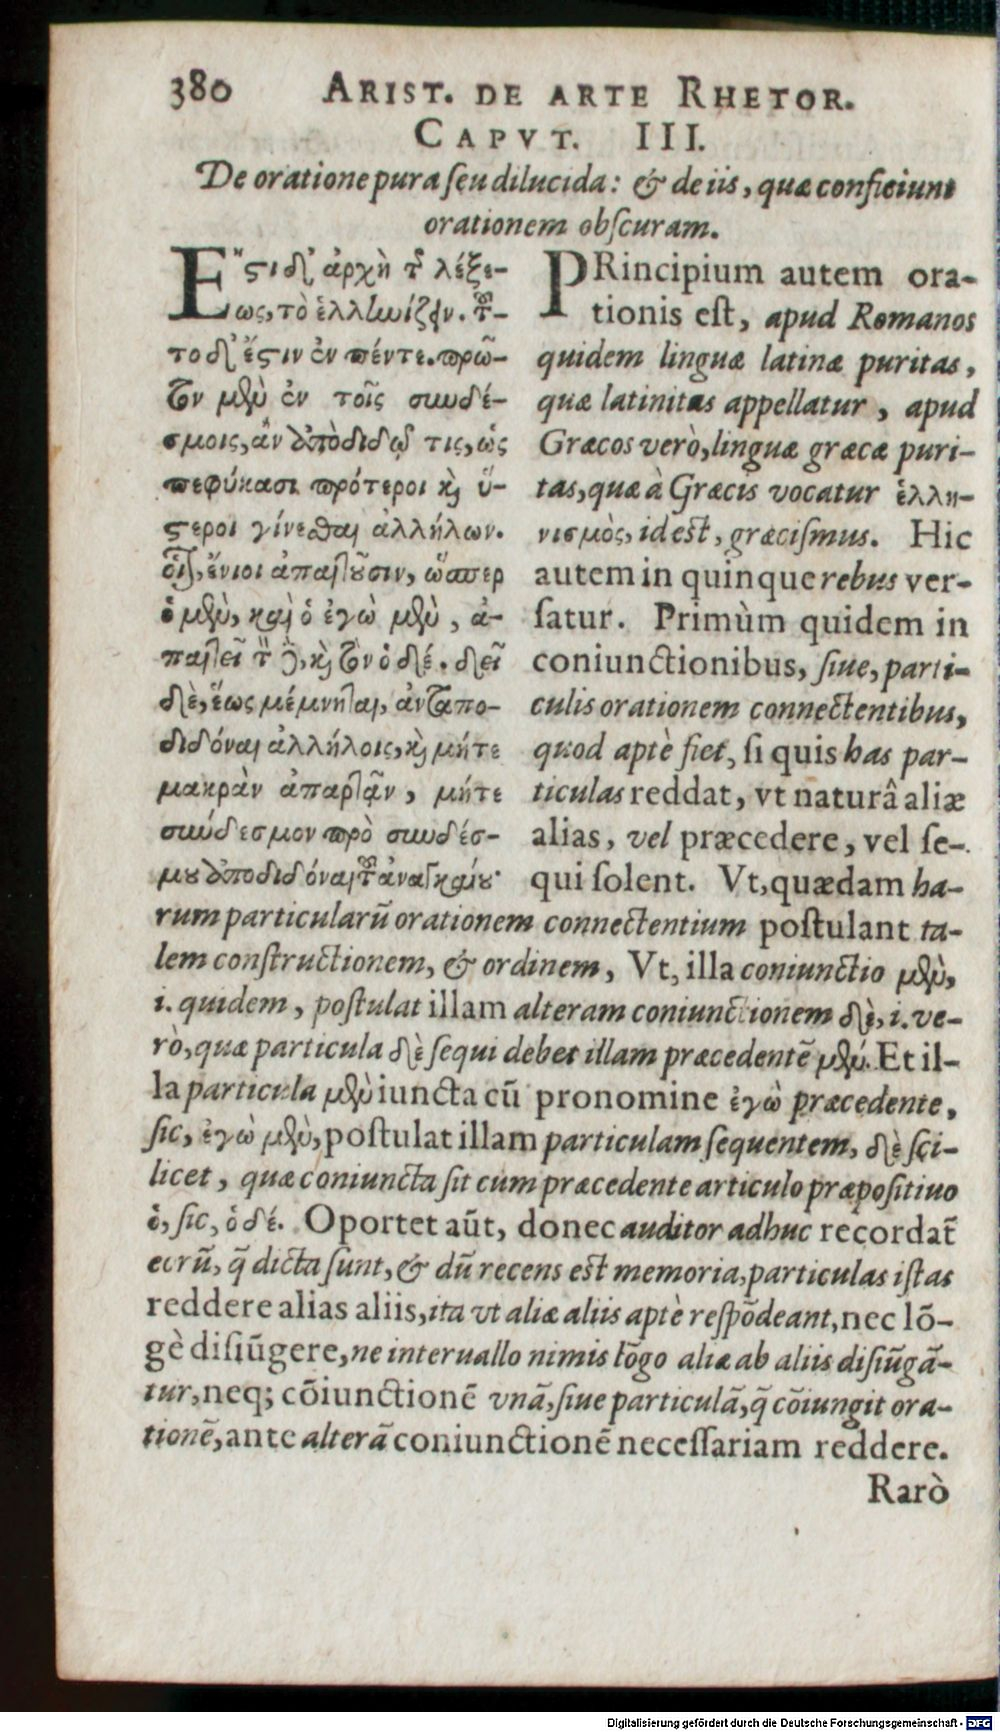 380 ARIST. DE ARTE RHETOR.
CAPVT. III.
De oratione pura seu dilucida: & de iis, quæ conficiunt
orationem obscuram.
Ἔστι δ' ἀρχὴ τῆς λέξε-
ως, τὸ ἑλλωίζειν. τῦ-
το δ' ἔστιν ἐν πέντε. πρῶ-
τον μὲν ἐν τοῖς συνδέ-
σμοις, ἂν ἀποδιδῷ τις, ὡς
πεφύκασι πρότεροι καὶ ὕ-
στεροι γίνεσθαι ἀλλήλων.
οἷον, ἔνιοι ἀπαιτοῦσιν, ὥσπερ
ὁ μὲν, καὶ ὁ ἐγὼ μὲν, ἀ-
παιτεῖ τὸν δὲ, καὶ τὸν ὁ δέ. δεῖ
δὲ, ἕως μέμνηται, ἀνταπο-
διδόναι ἀλλήλοις, καὶ μήτε
μακρὰν ἀπαρτᾷν, μήτε
σύνδεσμον πρὸ συνδέσ-
μου ἀποδιδόναι τοῦ ἀναγκαίου·
PRincipium autem ora-
tionis est, apud Romanos
quidem linguæ latinæ puritas,
quæ latinitas appellatur, apud
Græcos verò, linguæ græcæ puri-
tas, quæ à Græcis vocatur ἑλλη-
νισμὸς, id est, græcismus. Hic
autem in quinque rebus ver-
satur. Primùm quidem in
coniunctionibus, siue, parti-
culis orationem connectentibus,
quod aptè fiet, si quis has par-
ticulas reddat, vt naturâ aliæ
alias, vel præcedere, vel se-
qui solent. Vt, quædam ha-
rum particularū orationem connectentium postulant ta-
lem constructionem, & ordinem, Vt, illa coniunctio μὲν,
i. quidem, postulat illam alteram coniunctionem δὲ, i. ve-
rò, quæ particula δὲ sequi debet illam præcedentē μέν. Et il-
la particula μὲν iuncta cū pronomine ἐγὼ præcedente,
sic, ἐγὼ μὲν, postulat illam particulam sequentem, δὲ sci-
licet, quæ coniuncta sit cum præcedente articulo præpositiuo
ὁ, sic, ὁ δέ. Oportet aūt, donec auditor adhuc recordat̃
eorū, q̃ dicta sunt, & dū recens est memoria, particulas istas
reddere alias aliis, ita vt aliæ aliis aptè respōdeant, nec lō-
gè disiūgere, ne interuallo nimis lōgo aliæ ab aliis disiūgā-
tur, neq; cōiunctionē vnā, siue particulā, q̃ cōiungit ora-
tionē, ante alterā coniunctionē necessariam reddere.
Rarò
Digitalisierung gefördert durch die Deutsche Forschungsgemeinschaft - DFG